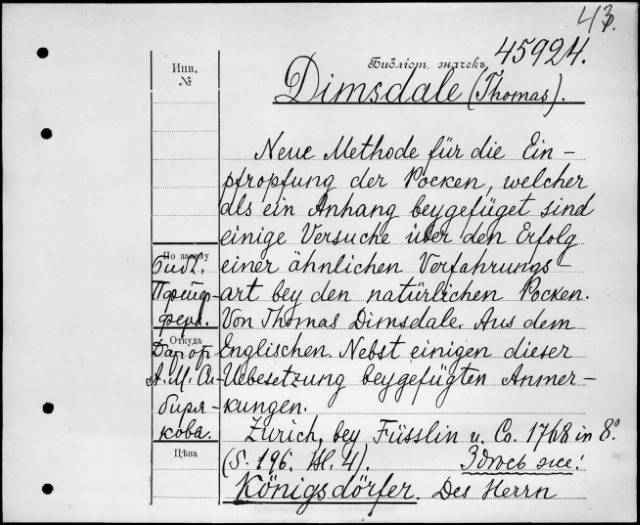 43.
Библіот. значекъ 45924.
Инв.
№
Dimsdale (Thomas).
Neue Methode für die Ein-
pfropfung der Pocken, welcher
als ein Anhang beygefüget sind
einige Versuche über den Erfolg
einer ähnlichen Verfahrungs-
art bey den natürlichen Pocken.
Von Thomas Dimsdale. Aus dem
Englischen. Nebst einigen dieser
Uebesetzung beygefügten Anmer-
kungen.
Zürich, bey Füsslin u. Co. 1768 in 8º
(S. 196. Bl. 4). Здѣсь же:
Königsdörfer. Des Herrn
По заказу
библ.
Пфейф-
фера.
Откуда
Дар от
А. М. Си-
биря-
кова.
Цѣна